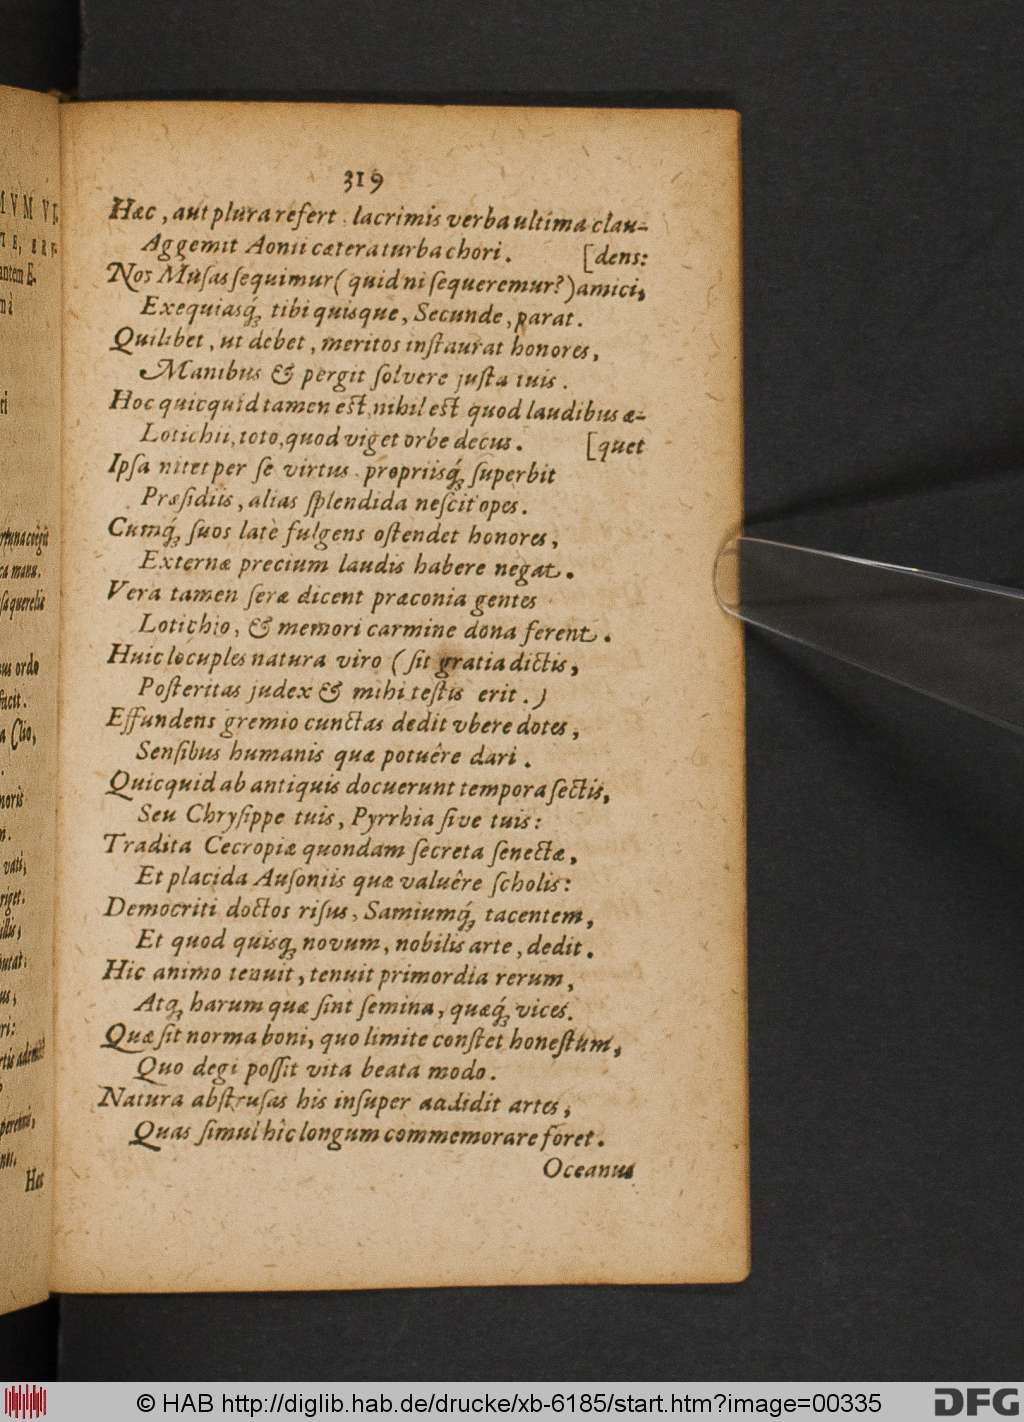 319
Hæc, aut plura refert lacrimis verba ultima clau-
Aggemit Aonii cætera turba chori. [dens:
Nos Musas sequimur (quid ni sequeremur?) amici,
Exequiasq́; tibi quisque, Secunde, parat.
Quilibet, ut debet, meritos instaurat honores,
Manibus & pergit solvere justa tuis.
Hoc quicquid tamen est, nihil est quod laudibus æ-
Lotichii, toto, quod viget orbe decus. [quet
Ipsa nitet per se virtus propriisq́; superbit
Præsidiis, alias splendida nescit opes.
Cumq́; suos latè fulgens ostendet honores,
Externæ precium laudis habere negat.
Vera tamen seræ dicent præconia gentes
Lotichio, & memori carmine dona ferent.
Huic locuples natura viro (sit gratia dictis,
Posteritas judex & mihi testis erit.)
Effundens gremio cunctas dedit vbere dotes,
Sensibus humanis quæ potuêre dari.
Quicquid ab antiquis docuerunt tempora sectis,
Seu Chrysippe tuis, Pyrrhia sive tuis:
Tradita Cecropiæ quondam secreta senectæ,
Et placida Ausoniis quæ valuêre scholis:
Democriti doctos risus, Samiumq́; tacentem,
Et quod quisq; novum, nobilis arte, dedit.
Hic animo tenuit, tenuit primordia rerum,
Atq; harum quæ sint semina, quæq́; vices.
Quæ sit norma boni, quo limite constet honestum,
Quo degi possit vita beata modo.
Natura abstrusas his insuper addidit artes,
Quas simul hîc longum commemorare foret.
Oceanus
© HAB http://diglib.hab.de/drucke/xb-6185/start.htm?image=00335
DFG